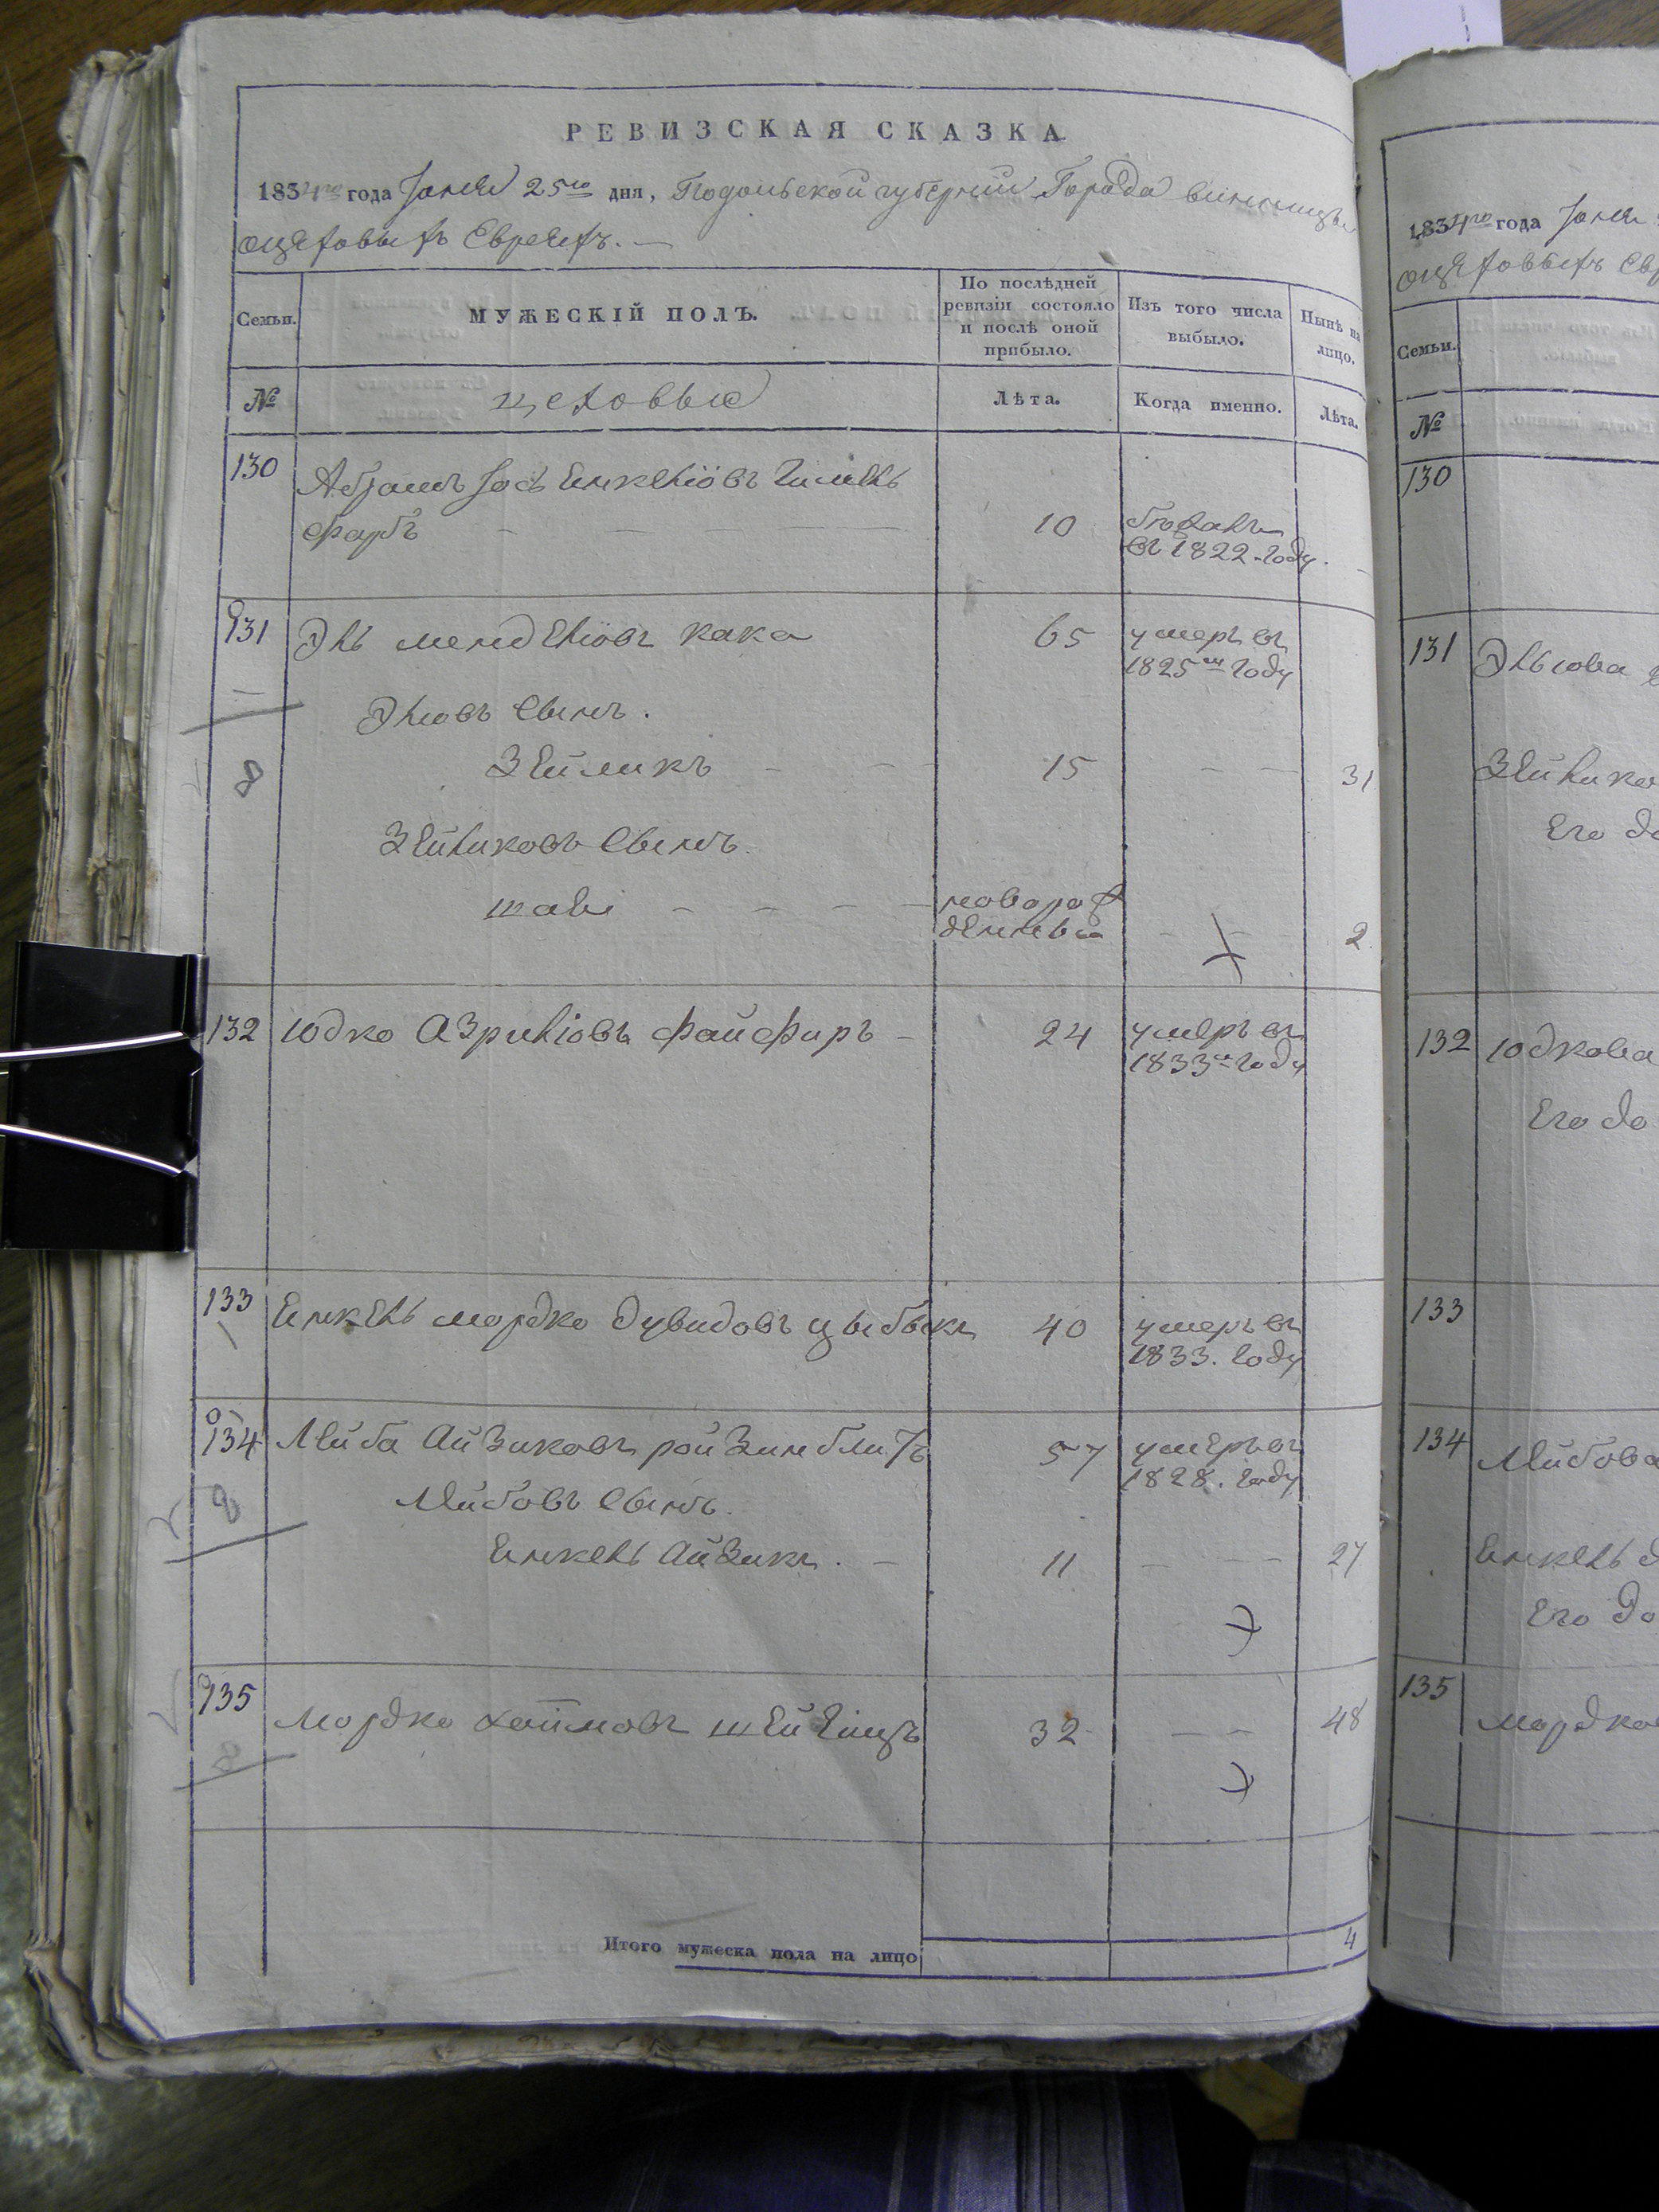 РЕВИЗСКАЯ СКАЗКА
1834го года Іюня 25го дня, Подольской губерніи Города винницы
оцѣховыхъ Евреяхъ. —
Семьи. МУЖЕСКІЙ ПОЛЪ. По послѣдней ревизіи состояло и послѣ оной прибыло. Изъ того числа выбыло. Нынѣ на лицо.
№ цеховые Лѣта. Когда именно. Лѣта.
130 Абрамъ Іось Енкеліовъ
фарбъ — — — 10 бѣжалъ
въ 1822. году. —
131 Эль менделіовъ кака 65 умеръ въ
1825м году
Эліовъ Сынъ.
8 Зейликъ — — 15 — — 31
Зейликовъ Сынъ.
новорож
деный — — 2
132 Юдко Азриліовъ файфиръ — 24 умеръ въ
1833м году
133 Енкель мордко дувидовъ цыбыкъ 40 умеръ въ
1833. году
134 Лейба Айзиковъ ройзинблитъ 57 умеръ въ
1828. году
8 Лейбовъ Сынъ.
Енкель Айзикъ. — 11 — — 27
135 Мордко хаимовъ 32 — — 48
8
Итого мужеска пола на лицо 4
1834го года Іюня
оцѣховыхъ Евр
Семьи.
№
130
131 Эльіова
Зейлика
Его до
132 Юдкова
Его до
133
134 Лейбова
Енкель
Его до
135 Мордко